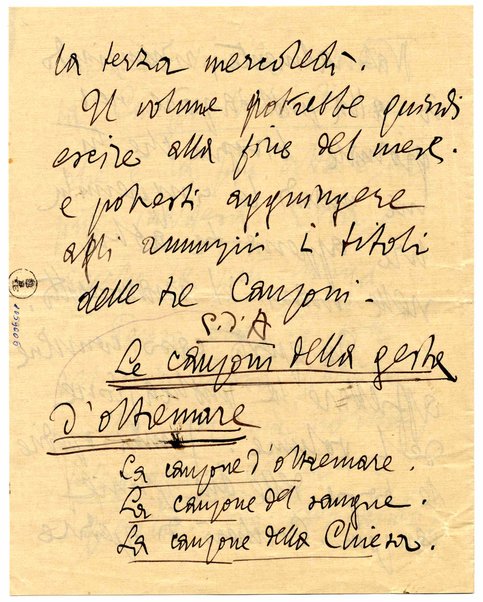 la terza mercoledì.
Il volume potrebbe quindi
escire alla fine del mese.
e potresti aggiungere
agli annunzii i titoli
delle tre Canzoni.
G. d'A
Le canzoni della gesta
d'oltremare
La canzone d'oltremare.
La canzone del sangue.
La canzone della Chiesa.